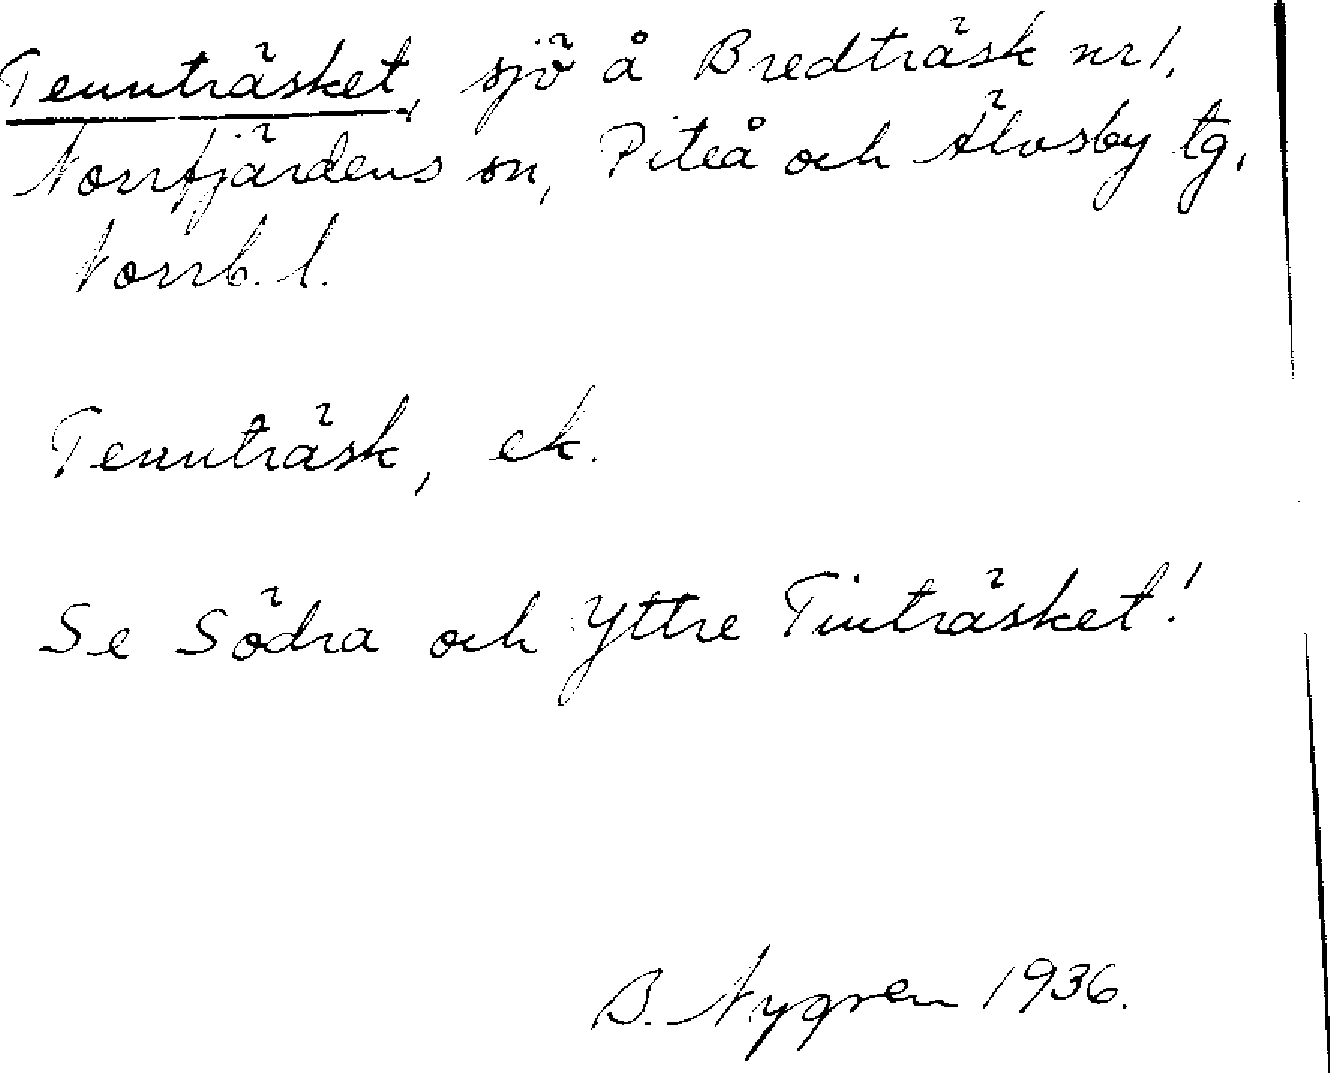 Tennträsket, sjö å Bredträsk nr 1,
Norrfjärdens sn, Piteå och Älvsby tg,
Norrb. l.
Tennträsk, ek.
Se Södra och Yttre Tinträsket!
B. Nygren 1936.